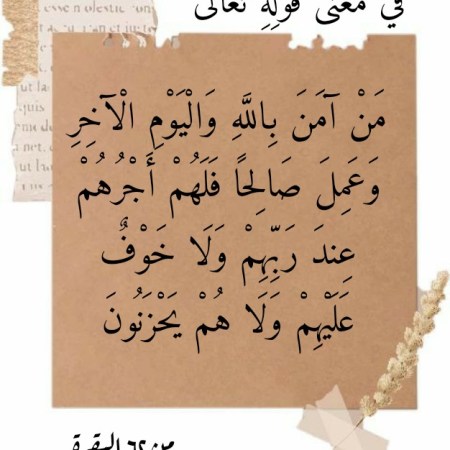 في معنى قوله تعالى
مَنْ آمَنَ بِاللَّهِ وَالْيَوْمِ الْآخِرِ
وَعَمِلَ صَالِحًا فَلَهُمْ أَجْرُهُمْ
عِندَ رَبِّهِمْ وَلَا خَوْفٌ
عَلَيْهِمْ وَلَا هُمْ يَحْزَنُونَ
من ٦٢ البقرة